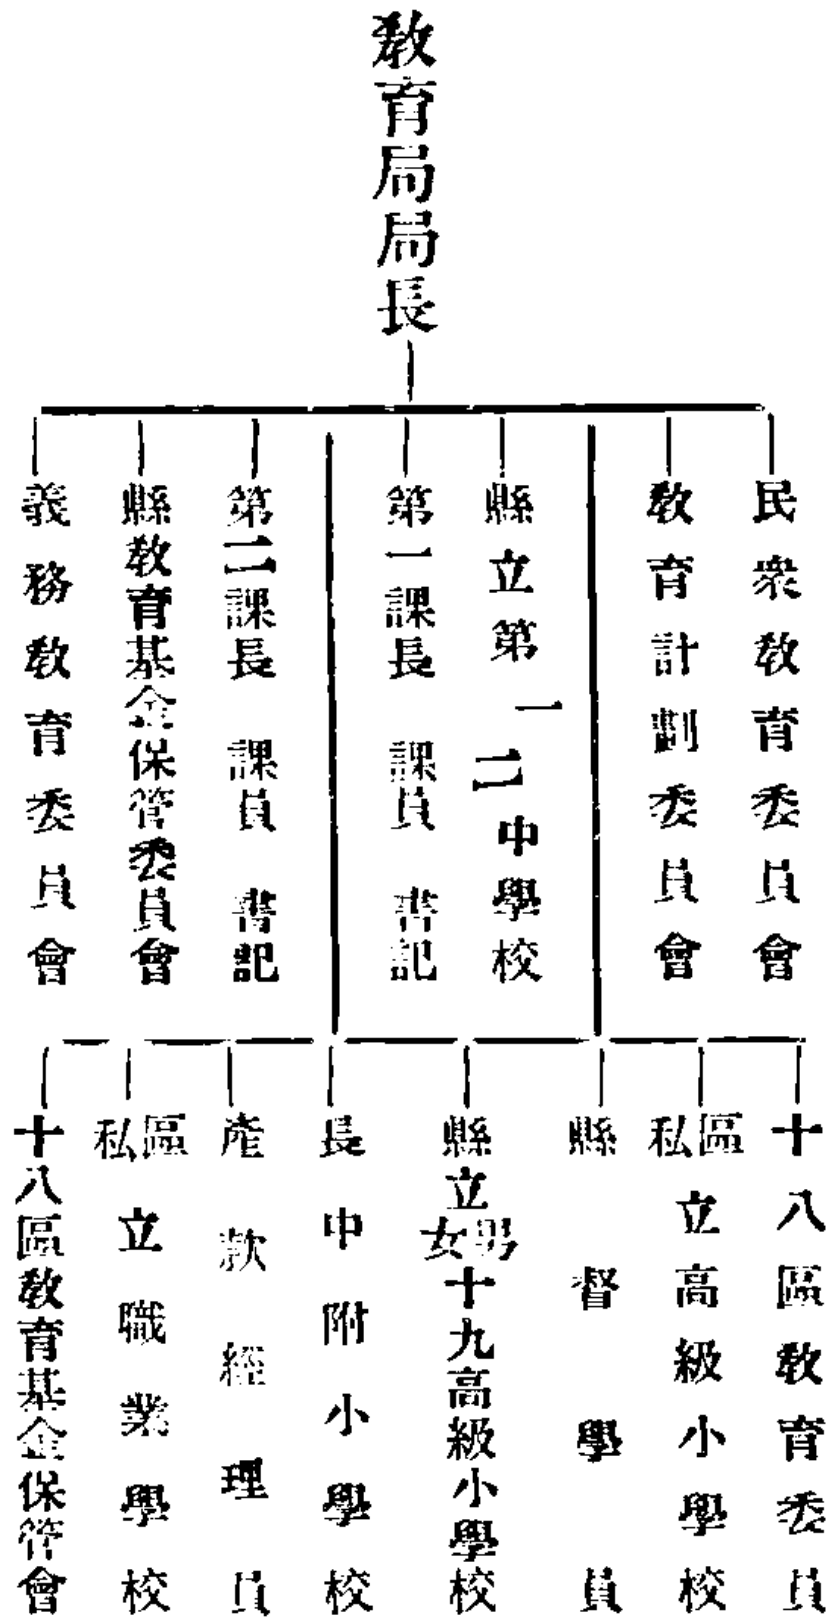 教育局局長
民衆教育委員會
教育計劃委員會
縣立第一二中學校
第一課長　課員　書記
第二課長　課員　書記
縣教育基金保管委員會
義務教育委員會
十八區教育委員
區私立高級小學校
縣督學員
縣立男女十九高級小學校
長中附小學校
產款經理員
區私立職業學校
十八區教育基金保管會